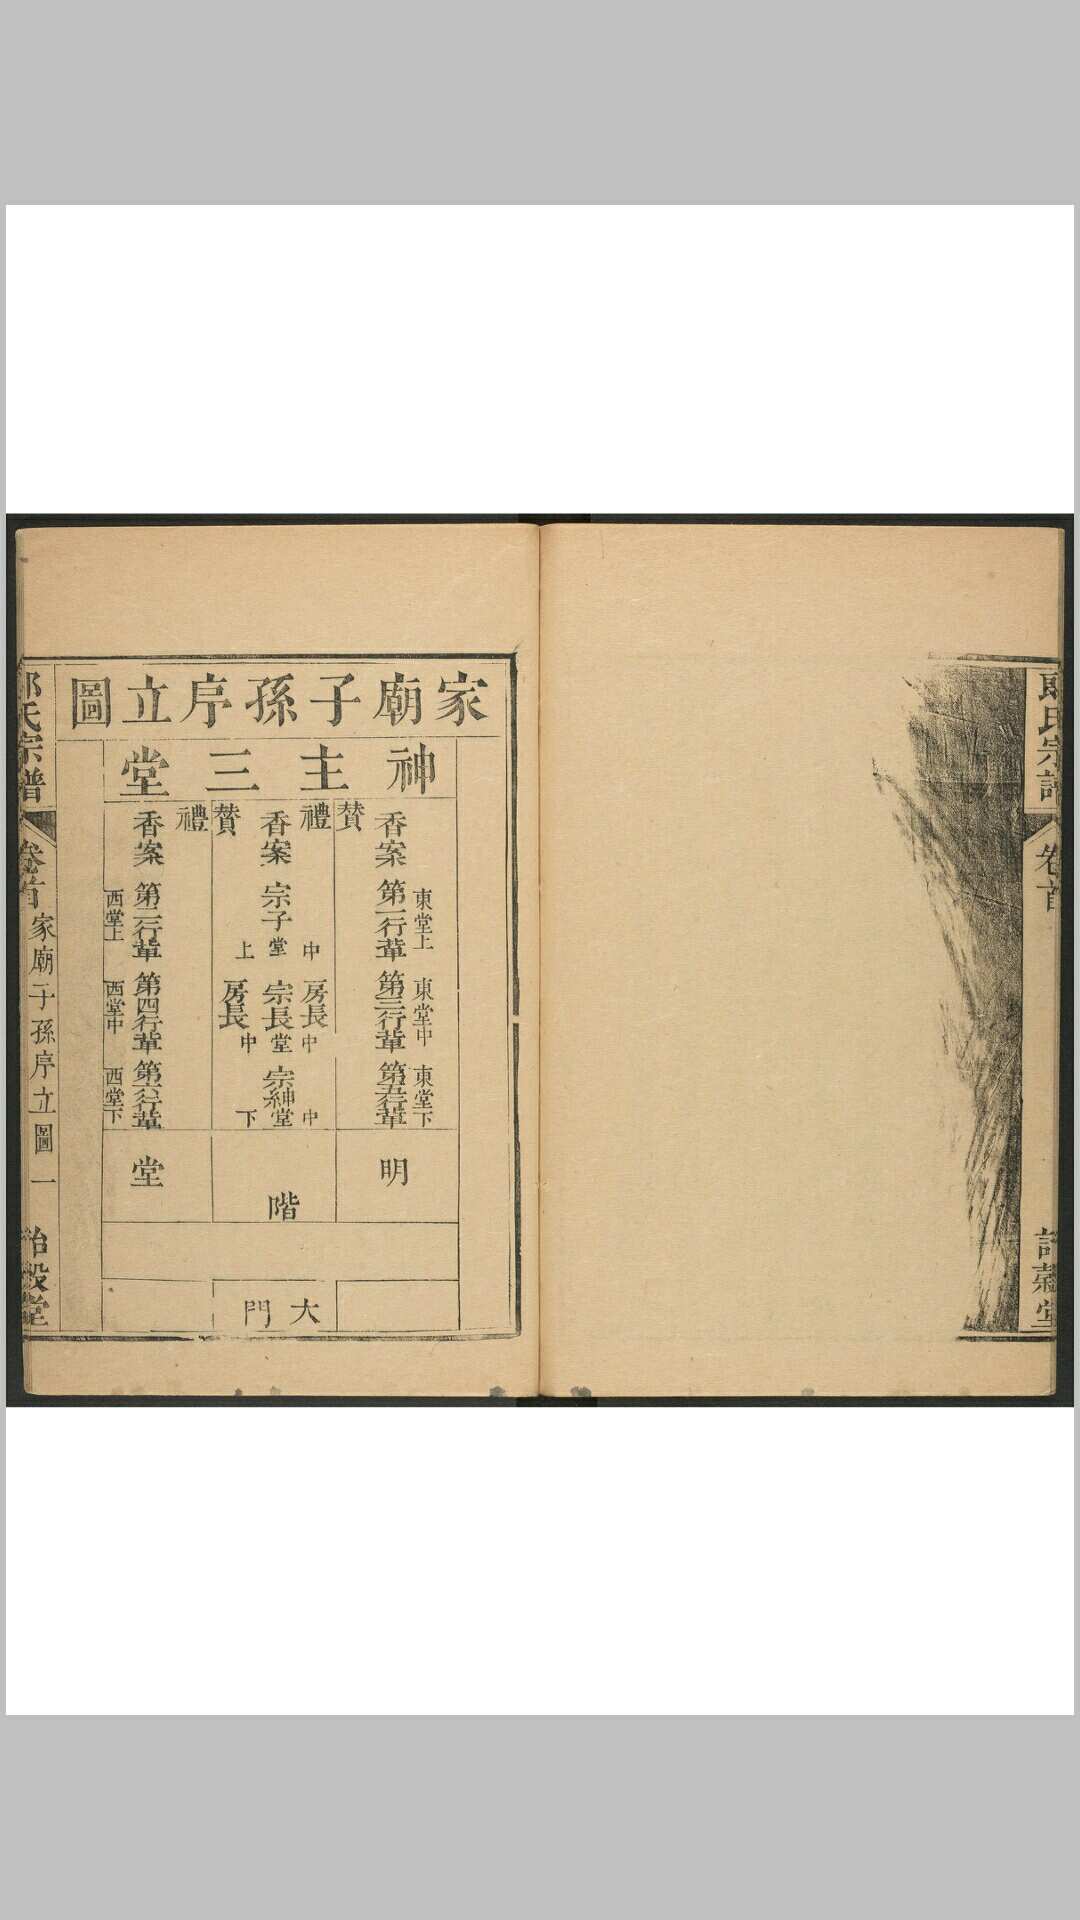 氏宗譜
卷首
詒穀堂
家廟子孫序立圖
神主三堂
東堂上
東堂中
東堂下
香案 第一行輩 第三行輩 第五行輩
明
贊禮
中
房長
中
中
香案 宗子 堂 宗長 堂 宗紳 堂
階
上
房長
中
下
贊禮
香案 第二行輩 第四行輩 第六行輩
堂
西堂上
西堂中
西堂下
大門
氏宗譜
卷首
家廟子孫序立圖 一
詒穀堂